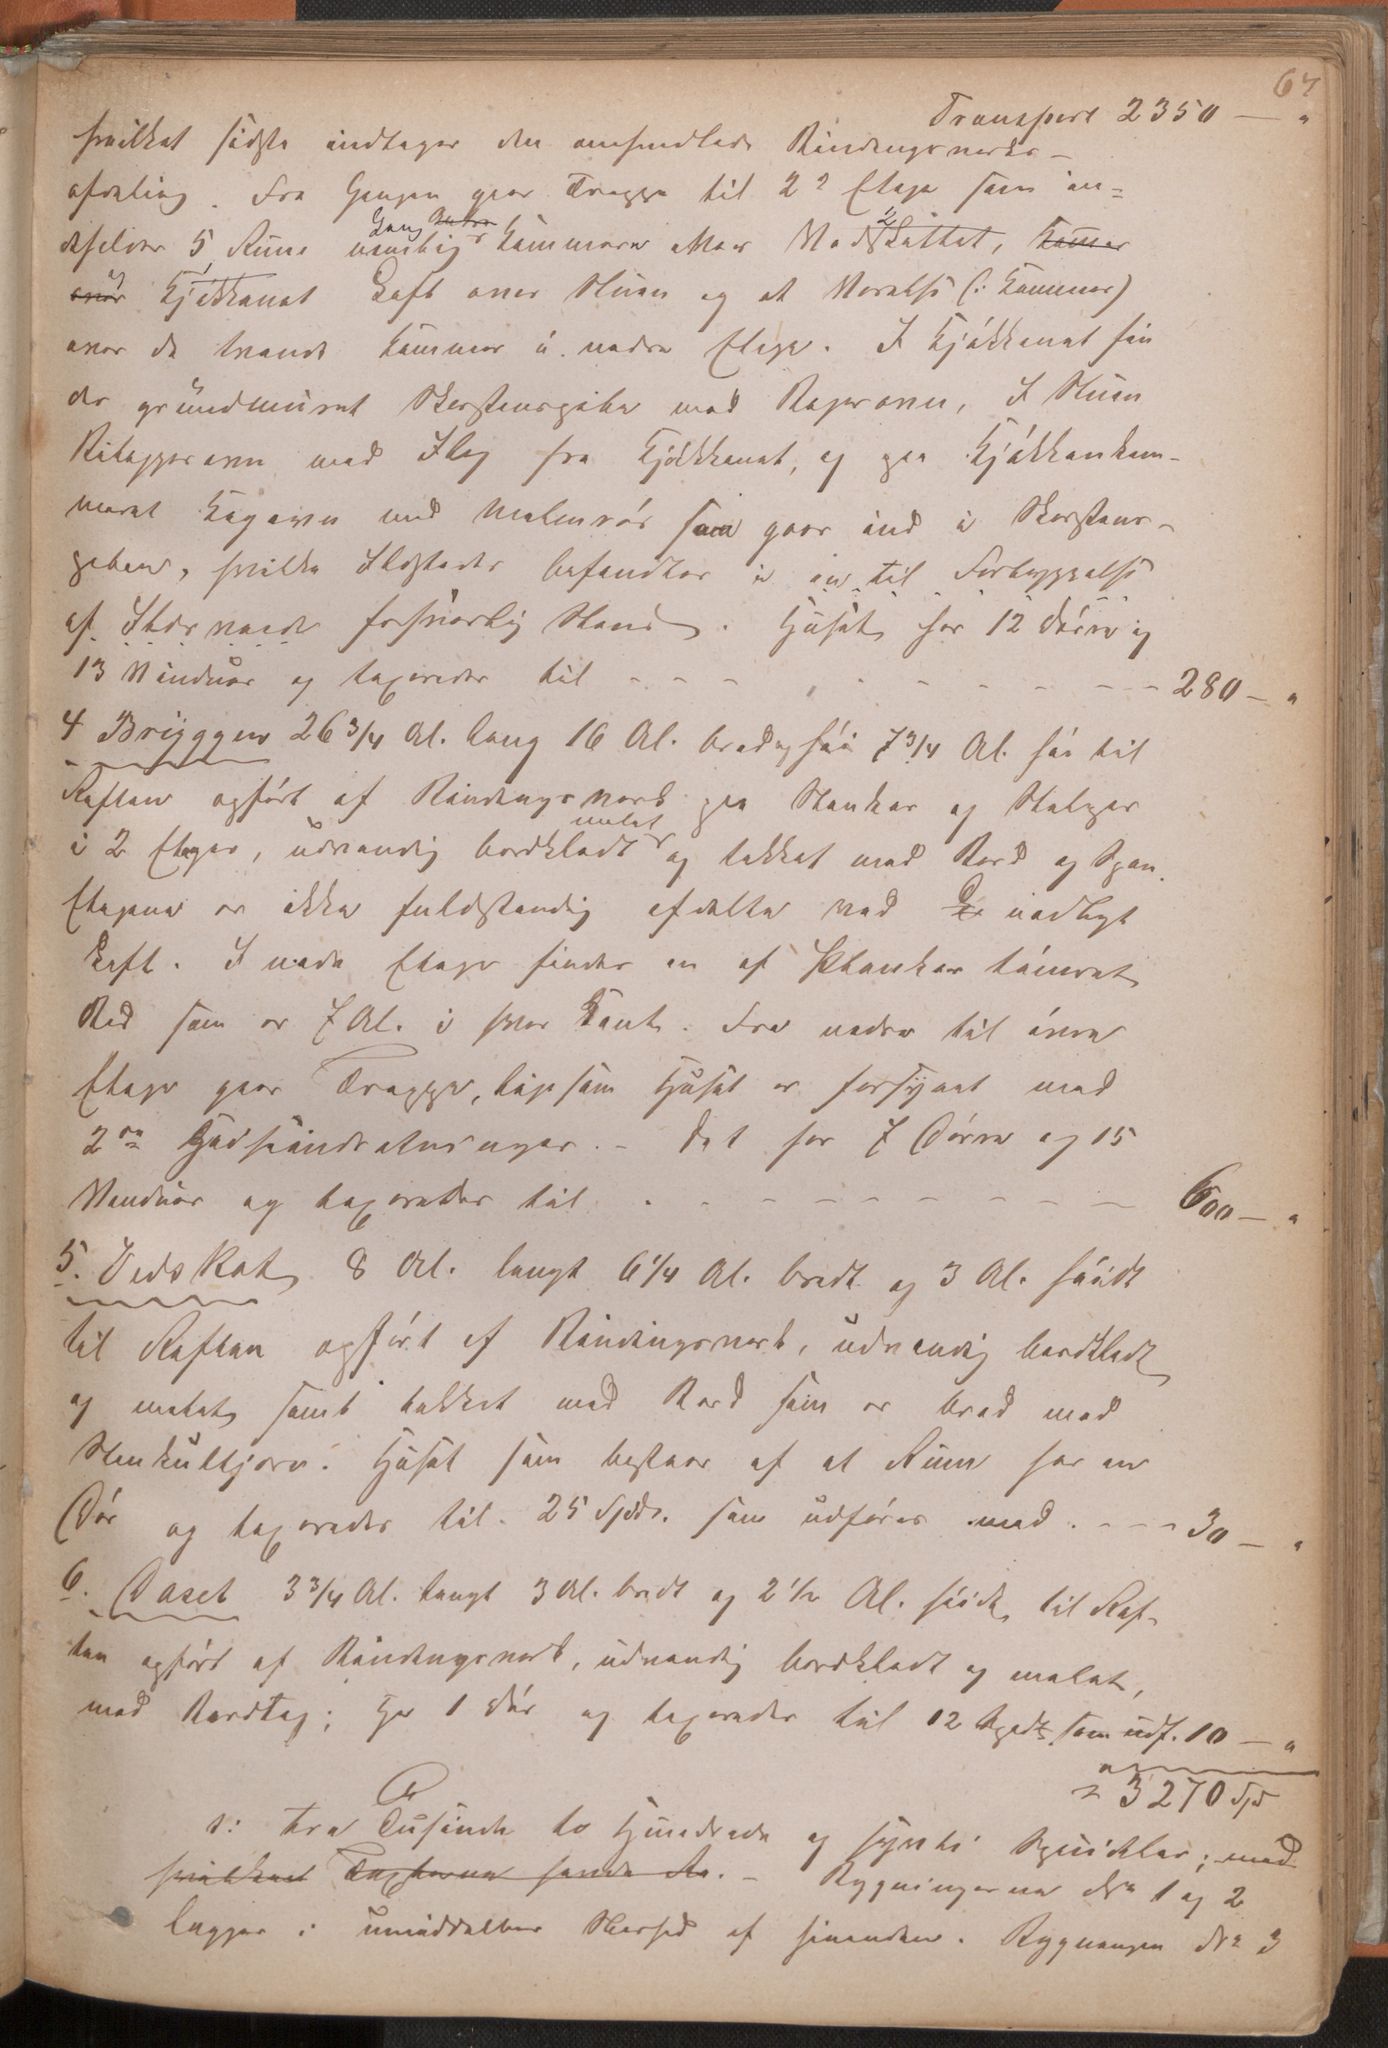 67
Transport 2350 — "
hvilket sidste indtager den omhandlede Bindingsverks-
afdeling. Fra Gangen gaar Trappe til 2den Etage som in-
deholder 5 Rum nemlig Gang Kammere over Stadskottet,
Kjøkkenet Loft over Stuen og et Værelse (: Kammer)
over de tvende Kammer i nedre Etage. I Kjøkkenet fin
der grundmuret Skorstenspibe med Bagerovn, I Stuen
Bilæggerovn med Ilæg fra Kjøkkenet, og paa Kjøkkenkam-
meret Kogeovn med Malmrør som gaar ind i Skorstens-
piben, hvilke Ildsteder befandtes i en til Forebyggelse
af Ildsvaade forsvarlig Stand. Huset har 12 Døre og
13 Vinduer og taxeredes til - - - - - - - - - - - 280 — "
4 Bryggen 26 3/4 Al. lang 16 Al. bred og høi 7 3/4 Al. høi til
Raften opført af Bindingsverk paa Stænker og Stolper
i 2 Etager, udvendig bordklædt malet og tækket med Bord og Spon.
Etagerne er ikke fuldstændig afdelte ved indlagt
Loft. I nedre Etage findes en af Planker tømret
Bod som er 7 Al. i hver Kant. Fra nedre til øvre
Etage gaar Trappe, ligesom Huset er forsynet med
2de Gudheindretninger. - Det har 7 Døre og 15
Vinduer og taxeredes til . - - - - - - - - - 600 — "
5. Vedskot 8 Al. langt 6 1/4 Al. bredt og 3 Al. høidt
til Raften opført af Bindingsverk, udvendig bordklædt
og malet samt tækket med Bord som er bræd med
Stenkultjære. Huset som bestaar af et Rum har en
Dør og taxeredes til 25 Spdr. som udføres med . - - - 30 — "
6. Daset 3 3/4 Al. langt 3 Al. bredt og 2 1/2 Al. høidt til Raf-
ten opført af Bindingsverk, udvendig bordklædt og malet,
med Bordtag; har 1 Dør og taxeredes til 12 Spd som udf. 10 — "
= 3270 Spd
s: tre Tusinde to Hundrede og sytti Specidler; med
hvilket Taxterne sende da. - Bygningerne No 1 og 2
ligger i umiddelbar Nærhed af hinanden. Bygningen No 3